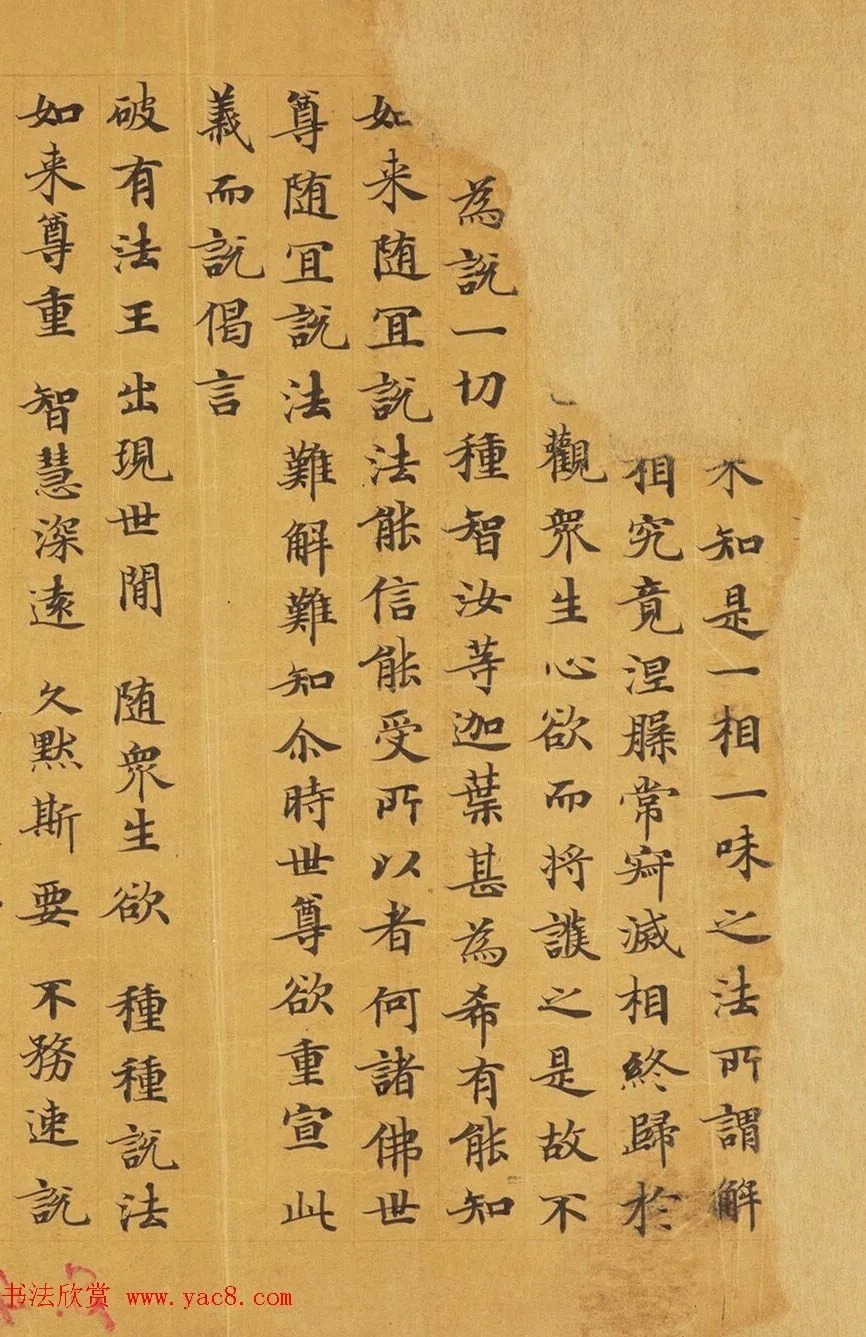 不知是一相一味之法所謂解
相究竟涅槃常寂滅相終歸於
觀衆生心欲而将護之是故不
為説一切種智汝等迦葉甚為希有能知
如来随冝説法能信能受所以者何諸佛世
尊随冝説法難解難知尒時世尊欲重宣此
義而説偈言
破有法王 出現世間 随衆生欲 種種説法
如来尊重 智慧深遠 久黙斯要 不務速説
书法欣赏 www.yac8.com